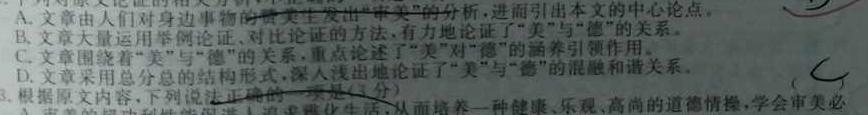 下列对原文论证的相关分析
A. 文章由人们对身边事物的赞美生发出“审美”的分析,进而引出本文的中心论点。
B. 文章大量运用举例论证、对比论证的方法,有力地论证了“美”与“德”的关系。
C. 文章围绕着“美”与“德”的关系,重点论述了“美”对“德”的涵养引领作用。
D. 文章采用总分总的结构形式,深入浅出地论证了“美”与“德”的混融和谐关系。
C
3. 根据原文内容,下列说法正确的一项是(3分)
A. 审美的超功利性能促进人追求雅化生活,从而培养一种健康、乐观、高尚的道德情操,学会审美必